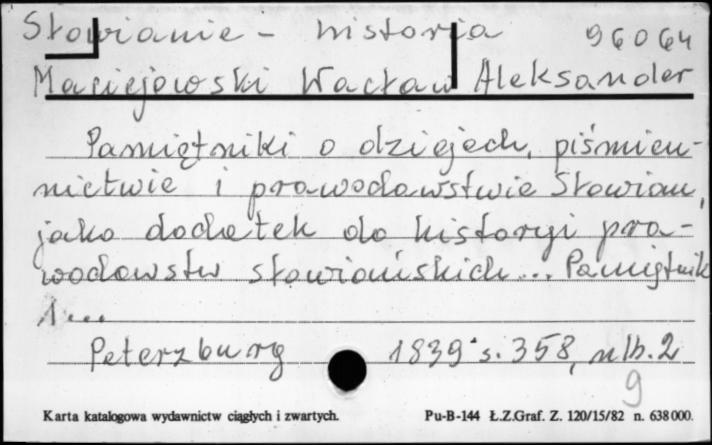 Słowianie - historia 96064
Maciejowski Wacław Aleksander
Pamiętniki o dziejach, piśmien-
nictwie i prawodawstwie Słowian,
jako dodatek do historyi pra-
wodawstw słowiańskich... Pamiętnik
1...
Peterzburg 1839 s. 358, nlb. 2
9
Karta katalogowa wydawnictw ciągłych i zwartych. Pu-B-144 Ł.Z.Graf. Z. 120/15/82 n. 638000.